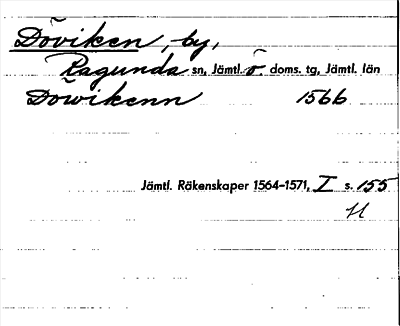 Döviken, by,
Ragunda sn, Jämtl. ö. doms. tg, Jämtl. län
Dowikenn 1566
Jämtl. Räkenskaper 1564-1571, I s. 155